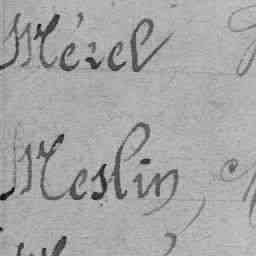 Mérel
Meslin,